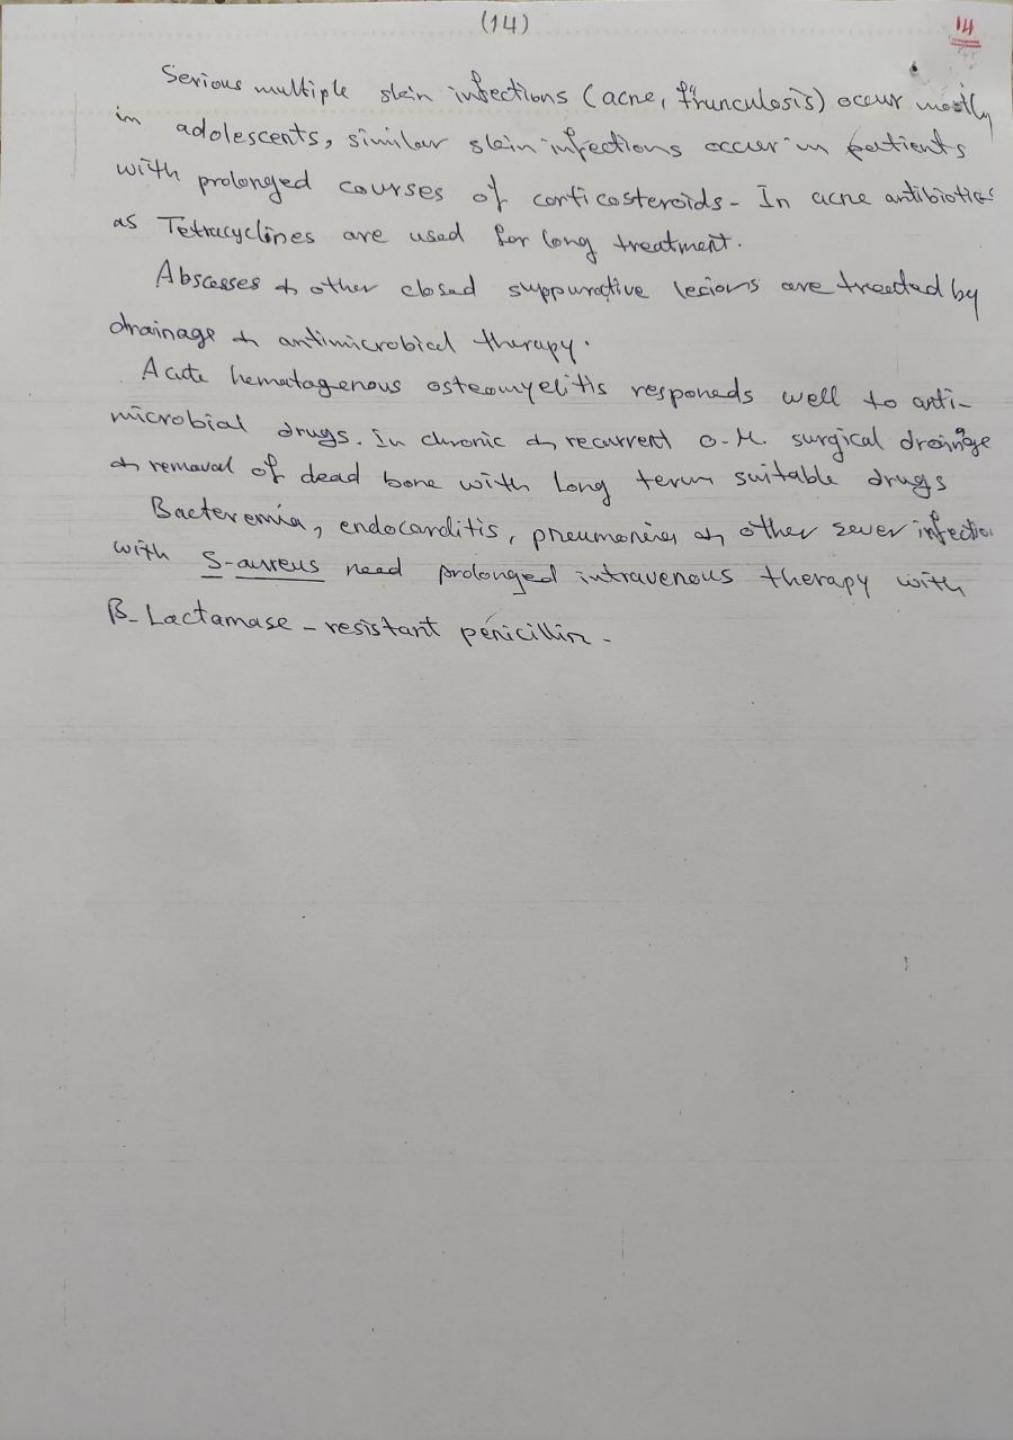 (14)
14
Serious multiple skin infections (acne, frunculosis) occur mostly
in adolescents, similar skin infections occur in patients
with prolonged courses of corticosteroids - In acne antibiotics
as Tetracyclines are used for long treatment.
Abscesses & other closed suppurative lesions are treated by
drainage & antimicrobial therapy.
Acute hematogenous osteomyelitis responeds well to anti-
microbial drugs. In chronic & recurrent O-M. surgical drainage
& removal of dead bone with long term suitable drugs
Bacteremia, endocarditis, pneumonia & other sever infection
with S-aureus need prolonged intravenous therapy with
B-Lactamase-resistant penicillin -